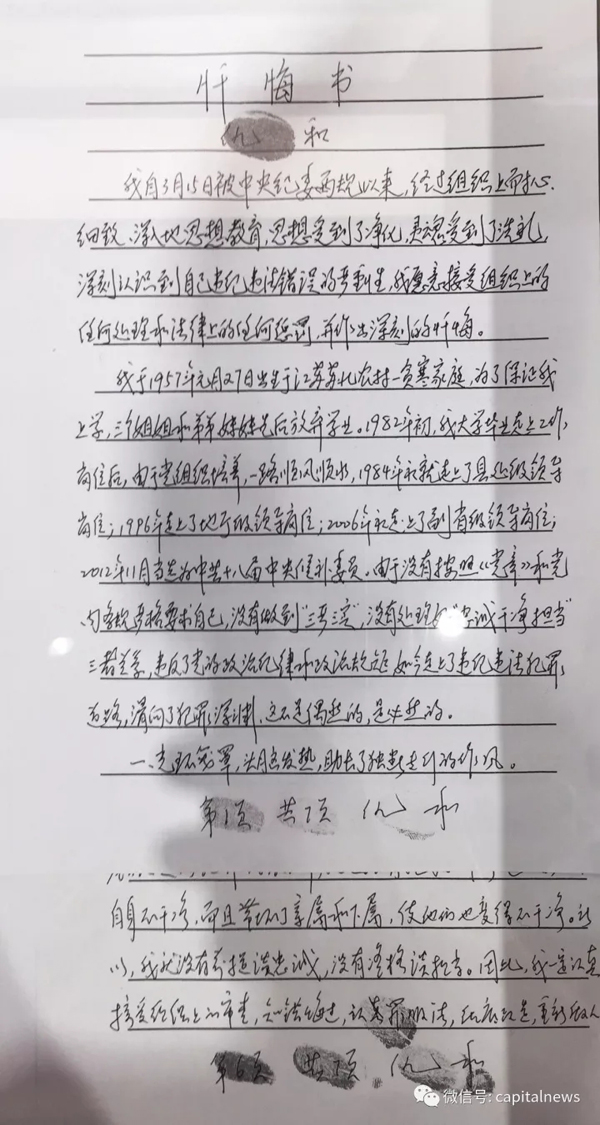 忏悔书
仇和
我自3月15日被中央纪委两规以来,经过组织上耐心、
细致、深入地思想教育,思想受到了净化,灵魂受到了洗礼,
深刻认识到自己违纪违法错误的严重性,我愿意接受组织上的
任何处理和法律上的任何惩罚,并作出深刻的忏悔。
我于1957年元月27日出生于江苏苏北农村一贫寒家庭,为了保证我
上学,三个姐姐和弟弟妹妹先后放弃学业。1982年初,我大学毕业走上工作
岗位后,由于党组织培养,一路顺风顺水,1984年就走上了县处级领导
岗位;1996年走上了地厅级领导岗位;2006年初走上了副省级领导岗位;
2012年11月当选为中共十八届中央候补委员。由于没有按照《党章》和党
内条规严格要求自己,没有做到“三严三实”,没有处理好“忠诚干净担当”
三者关系,违反了党的政治纪律和政治规矩,如今走上了违纪违法犯罪
道路,滑向了犯罪深渊,这不是偶然的,是必然的。
一、光环笼罩,头脑发热,助长了独断专行的作风。
第1页 共7页 仇和
自身不干净,而且带坏了亲属和下属,使他们也变得不干净。所
以,我就没有前提谈忠诚,没有资格谈担当。因此,我一定认真
接受组织上的审查,知错悔过,认罪服法,彻底改造,重新做人
第6页 共7页 仇和
微信号: capitalnews